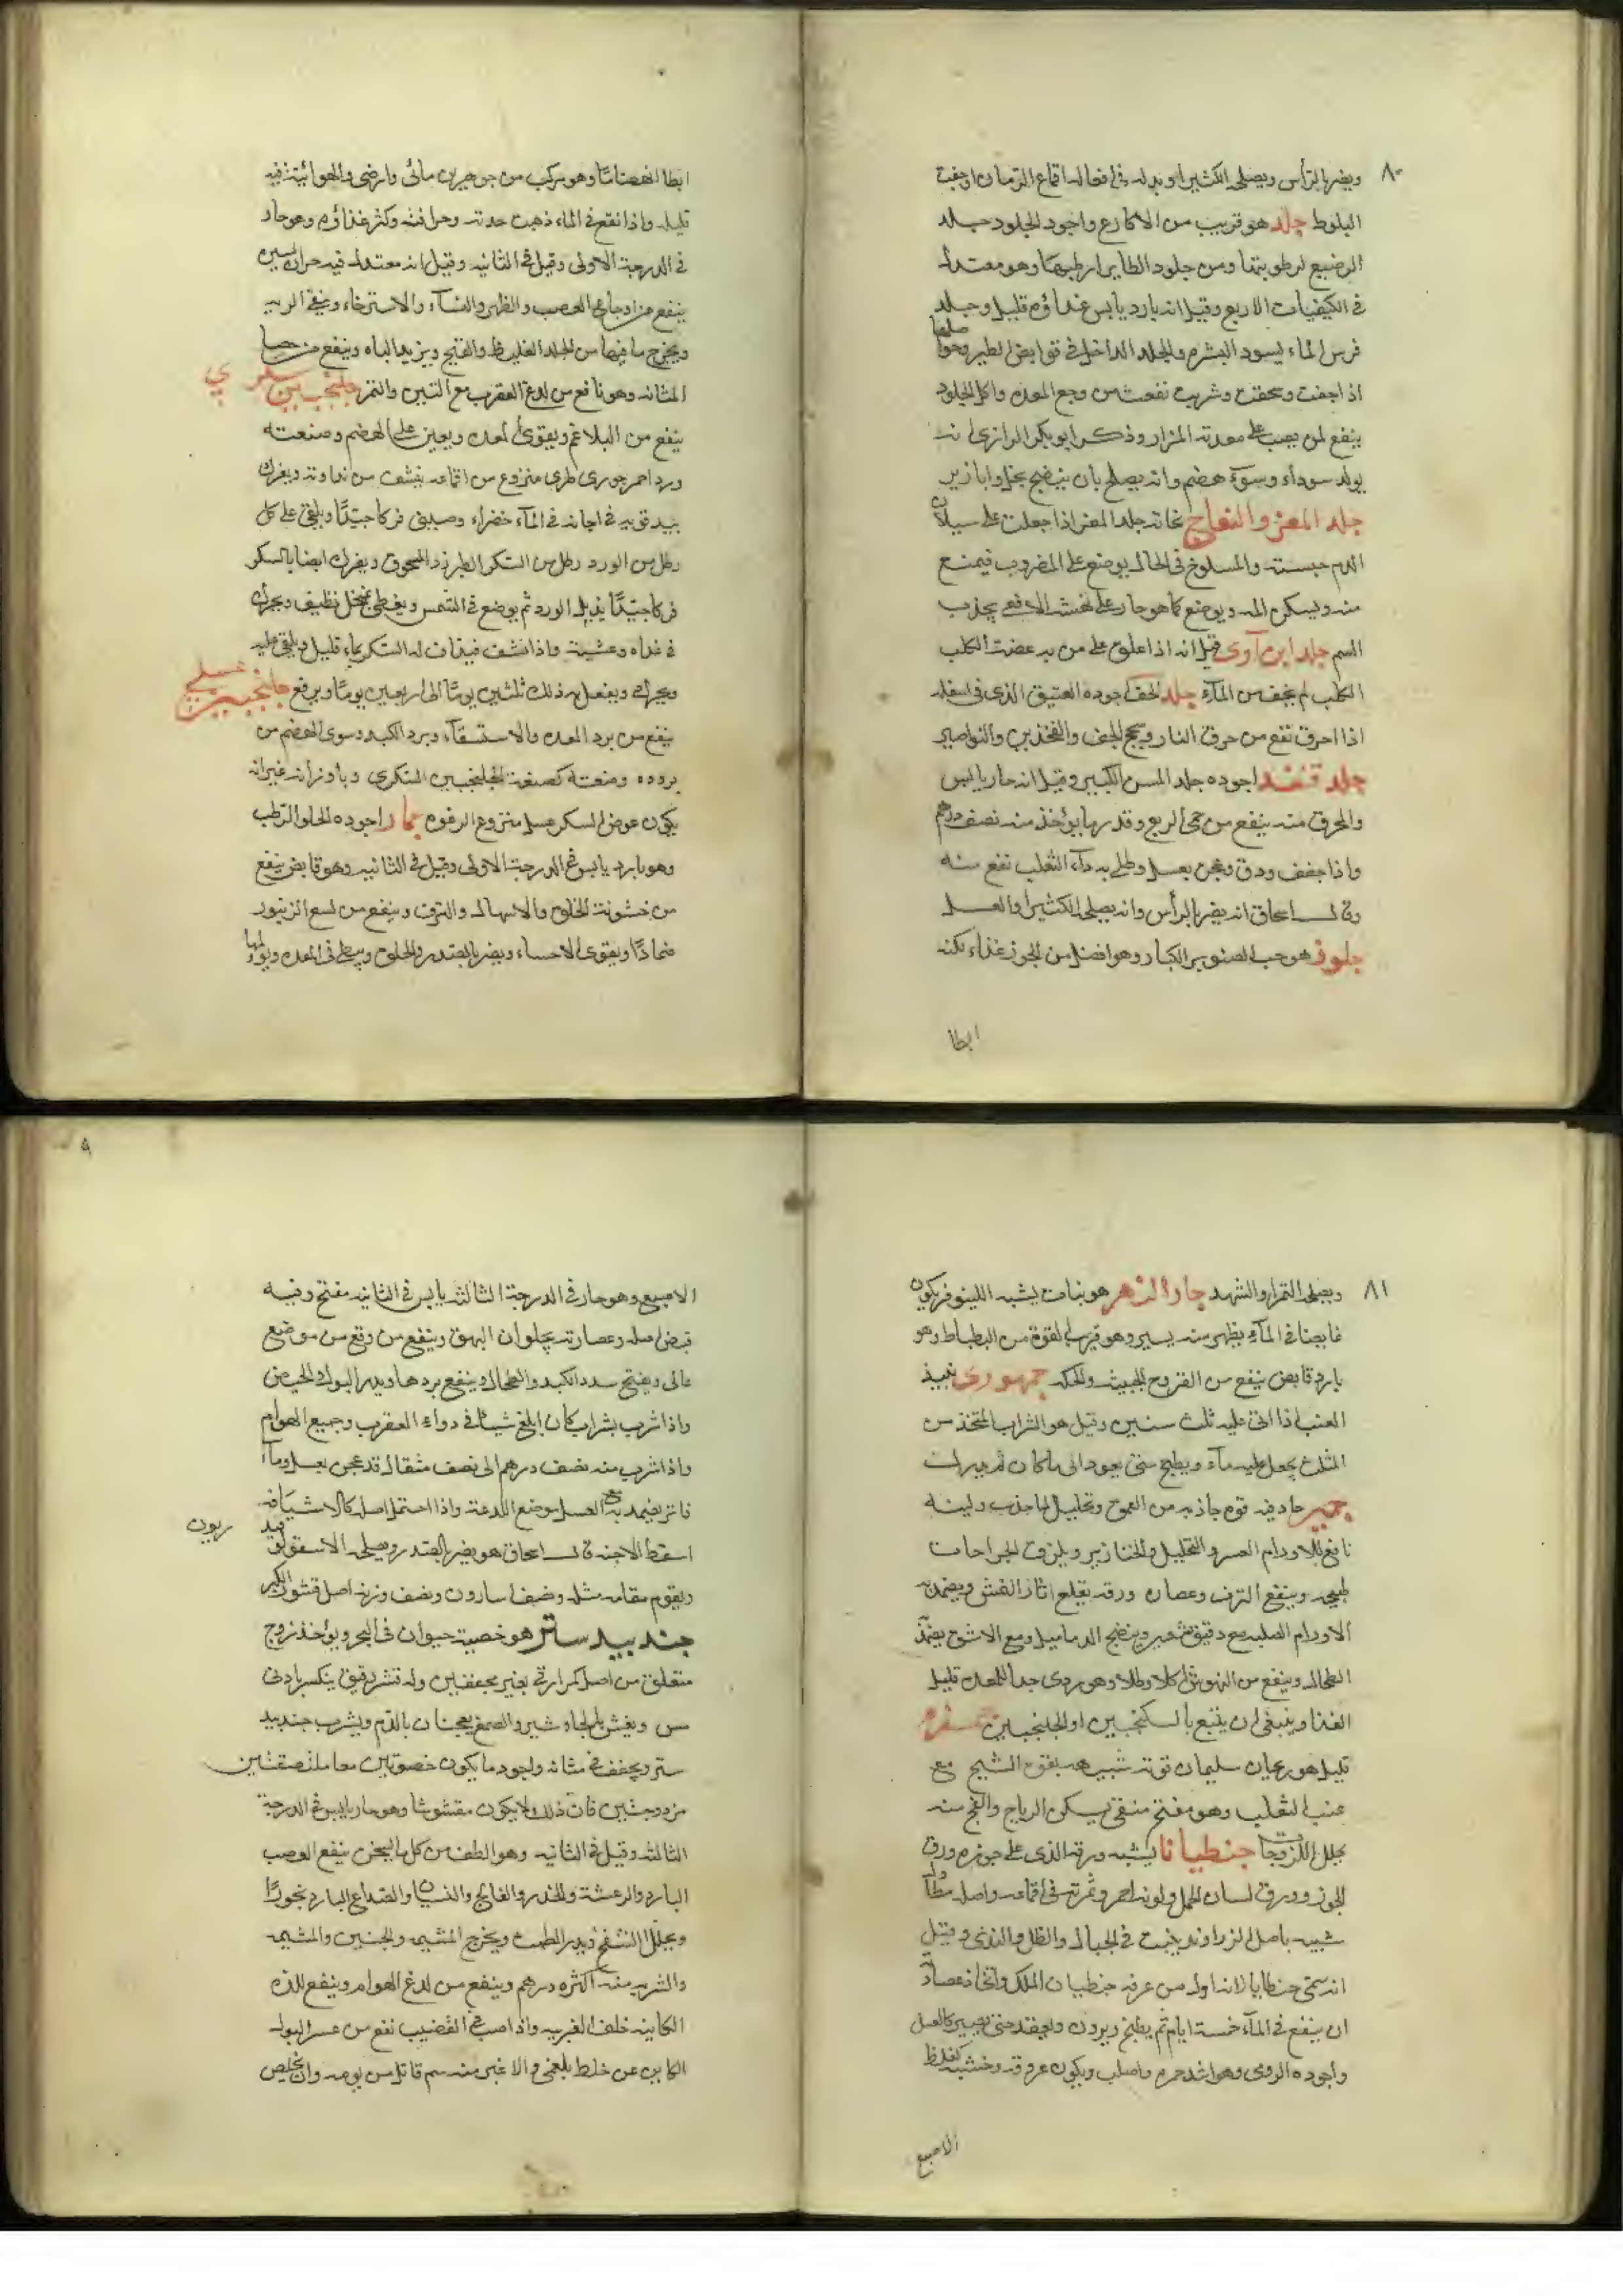 ٨٠
ويضر بالرأس ويصلحه الكثيرا وبدله في افعاله اقماع الرمان او جفت
البلوط جلد هو قريب من الاكارع واجود الجلود جلد
الرضيع لرطوبتها ومن جلود الطاير ارطبها وهو معتدل
في الكيفيات الاربع وقيل انه بارد يابس غذاؤه قليل وجلد
فرس الماء يسود البشرة والجلد الداخل في قوانص الطير وحواصلها
اذا جففت وسحقت وشربت نفعت من وجع المعدة واكل الجلود
ينفع لمن يصب على معدته المرار وذكر ابو بكر الرازي انه
يولد سوداء وسوء هضم وانه يصلح بان ينضج بخل وابازير
جلد المعز والنعاج نحاتة جلد المعز اذا جعلت على سيلان
الدم حبسته والمسلوخ في الحال يوضع على المضروب فيمنع
منه ويسكن الم ويوضع كما هو حار على نهشة الافعى يجذب
السم جلد ابن آوى قيل انه اذا علق على من به عضة الكلب
الكلب لم يخف من الماء جلد الخف اجوده العتيق الذي في اسفله
اذا احرق نفع من حرق النار وسحج الخف والفخذين والنواصير
جلد قنفد اجوده جلد المسن الكبير وقيل انه حار يابس
والمحرق منه ينفع من حمى الربع وقدر ما يؤخذ منه نصف درهم
واذا جفف ودق وعجن بعسل وطلي به داء الثعلب نفع منه
وقال اسحاق انه يضر بالرأس وانه يصلحه الكثيرا والعسل
جلوز هو حب الصنوبر الكبار وهو افضل من الجوز غذاء لكنه
ابطا
ابطا انهضاما وهو مركب من جوهرين مائي وارضي والهوائية فيه
قليلة واذا نقع في الماء ذهبت حدته وحرافته وكثر غذاؤه وهو حار
في الدرجة الاولى وقيل في الثانية وقيل انه معتدل فيه حرارة يسيرة
ينفع من اوجاع العصب والظهر والنساء والاسترخاء وينقي الرية
ويخرج ما فيها من الخلط الغليظ والقيح ويزيد الباه وينفع من حصا
المثانة وهو نافع من لدغ العقرب مع التين والتمر جلنجبين سكري
ينفع من البلاغم ويقوي المعدة ويعين على الهضم وصنعته
ورد احمر جوري طري منزوع من اقماعه ينشف من نداوته ويفرك
بيد قوية في اجانة في الماء خضراء وصيني فركا جيدا ويلقى على كل
رطل من الورد رطل من السكر الطبرزد المسحوق ويفرك ايضا بالسكر
فركا جيدا يذبل الورد ثم يوضع في الشمس ويغطى بمنخل نظيف ويحرك
في غداة وعشية واذا نشف فيذاف له السكر بماء قليل ويلقى عليه
ويحرك ويفعل به ذلك ثلثين يوما الى اربعين يوما ويرفع جلنجبين عسلي
ينفع من برد المعدة والاستسقاء وبرد الكبد وسوى الهضم من
برودة وصنعته كصنعة الجلنجبين السكري وباوزانه غير انه
يكون عوض السكر عسل منزوع الرغوة جمار اجوده الحلو الرطب
وهو بارد يابس في الدرجة الاولى وقيل في الثانية وهو قابض ينفع
من خشونة الحلق والاسهال والنزف وينفع من لسع الزنبور
ضمادا ويقوي الاحساء ويضر بالصدر والحلق ويبطي في المعدة ويؤلمها
٨١
ويصلحه التمر والشهد جار النهر هو نبات يشبه اللينوفر يكون
غايصا في الماء يظهر منه يسير وهو قريب القوة من البطباط وهو
بارد قابض ينفع من القروح الخبيثة والحكة جمهوري نبيذ
العنب اذا اتى عليه ثلث سنين وقيل هو الشراب المتخذ من
المثلث يجعل عليه ماء ويطبخ حتى يعود الى ما كان ثم يبرك
جميز حار فيه قوة جاذبة من العمق وتحليل لما جذب ولبنه
نافع للاورام العسرة التحليل والخنازير ويلزق الجراحات
طبيخه وينفع النزف وعصارة ورقه يقلع اثار الغش ويضمد به
الاورام الصلبة مع دقيق شعير وينضج الدماميل ومع الاشق يضمد
الطحال وينفع من النهوش اكلا وطلاء وهو ردي جدا للمعدة قليل
الغذا وينبغي ان يتبع بالسكنجبين او الجلنجبين
قيل هو ريحان سليمان قوته شبيهه بقوة الشيح مع
عنب الثعلب وهو مفتح منقي يسكن الرياح والنفخ منه
يحلل اللزوجات جنطيانا يشبه ورقه الذي على جوزه ورق
الجوز وورق لسان الحمل ولونه احمر وثمرته في اقماعه واصله مطاول
شبيه باصل الزراوند ينبت في الجبال والظل والندى وقيل
انه سمي جنطايا لانه اول من عرفه جنطيان الملك واتخاذ عصارته
ان ينقع في الماء خمسة ايام ثم يطبخ ويروق ويعقد حتى يصير كالعسل
واجوده الرومي وهو اشد حمرة واصلب ويكون عروقه وخشبه كغلظ
الاصبع
٩
الاصبع وهو حار في الدرجة الثالثة يابس في الثانية مفتح وفيه
قبض اصله وعصارته يجلوان البهق وينفع من وقع من موضع
عالي ويفتح سدد الكبد والطحال وينفع بردها ويدر البول والحيض
واذا شرب بشراب كان ابلغ شيا في دواء العقرب وجميع الهوام
واذا شرب منه نصف درهم الى نصف مثقال قد عجن بعسل وماء
فاتر يضمد به مع العسل موضع اللدغة واذا احتمل اصله كالاشيافة
اسقط الاجنة قال اسحاق هو يضر بالصدر ويصلحه الاسقولوقندريون
ويقوم مقامه مثله ونصف اسارون ونصف وزنه اصل قشور الكبر
جندبيدستر هو خصية حيوان في البحر ويؤخذ زوج
متعلق من اصل كمرارتي بعير مجففين وله قشر رقيق ينكسر بادنى
مس ويغش بالجاوشير والصمغ يعجنان بالدم ويشرب جندبيد
ستر ويجفف في مثانة واجوده ما يكون خصوتين معا ملتصقتين
مزدوجتين فان ذلك لا يكون مغشوشا وهو حار يابس في الدرجة
الثالثة وقيل في الثانية وهو الطف من كل ما يسخن ينفع العصب
البارد والرعشة والخدر والفالج والنسيان والصداع البارد بخورا
ويحلل النفخ ويدر الطمث ويخرج المشيمه والجنين والمشيمه
والشربة منه اكثره درهم وينفع من لدغ الهوام وينفع للذة
الكاينه خلف الغبريه واذا صب في القضيب نفع من عسر البول
الكاين عن خلط بلغمي والاغبر منه سم قاتل من يومه وان تخلص